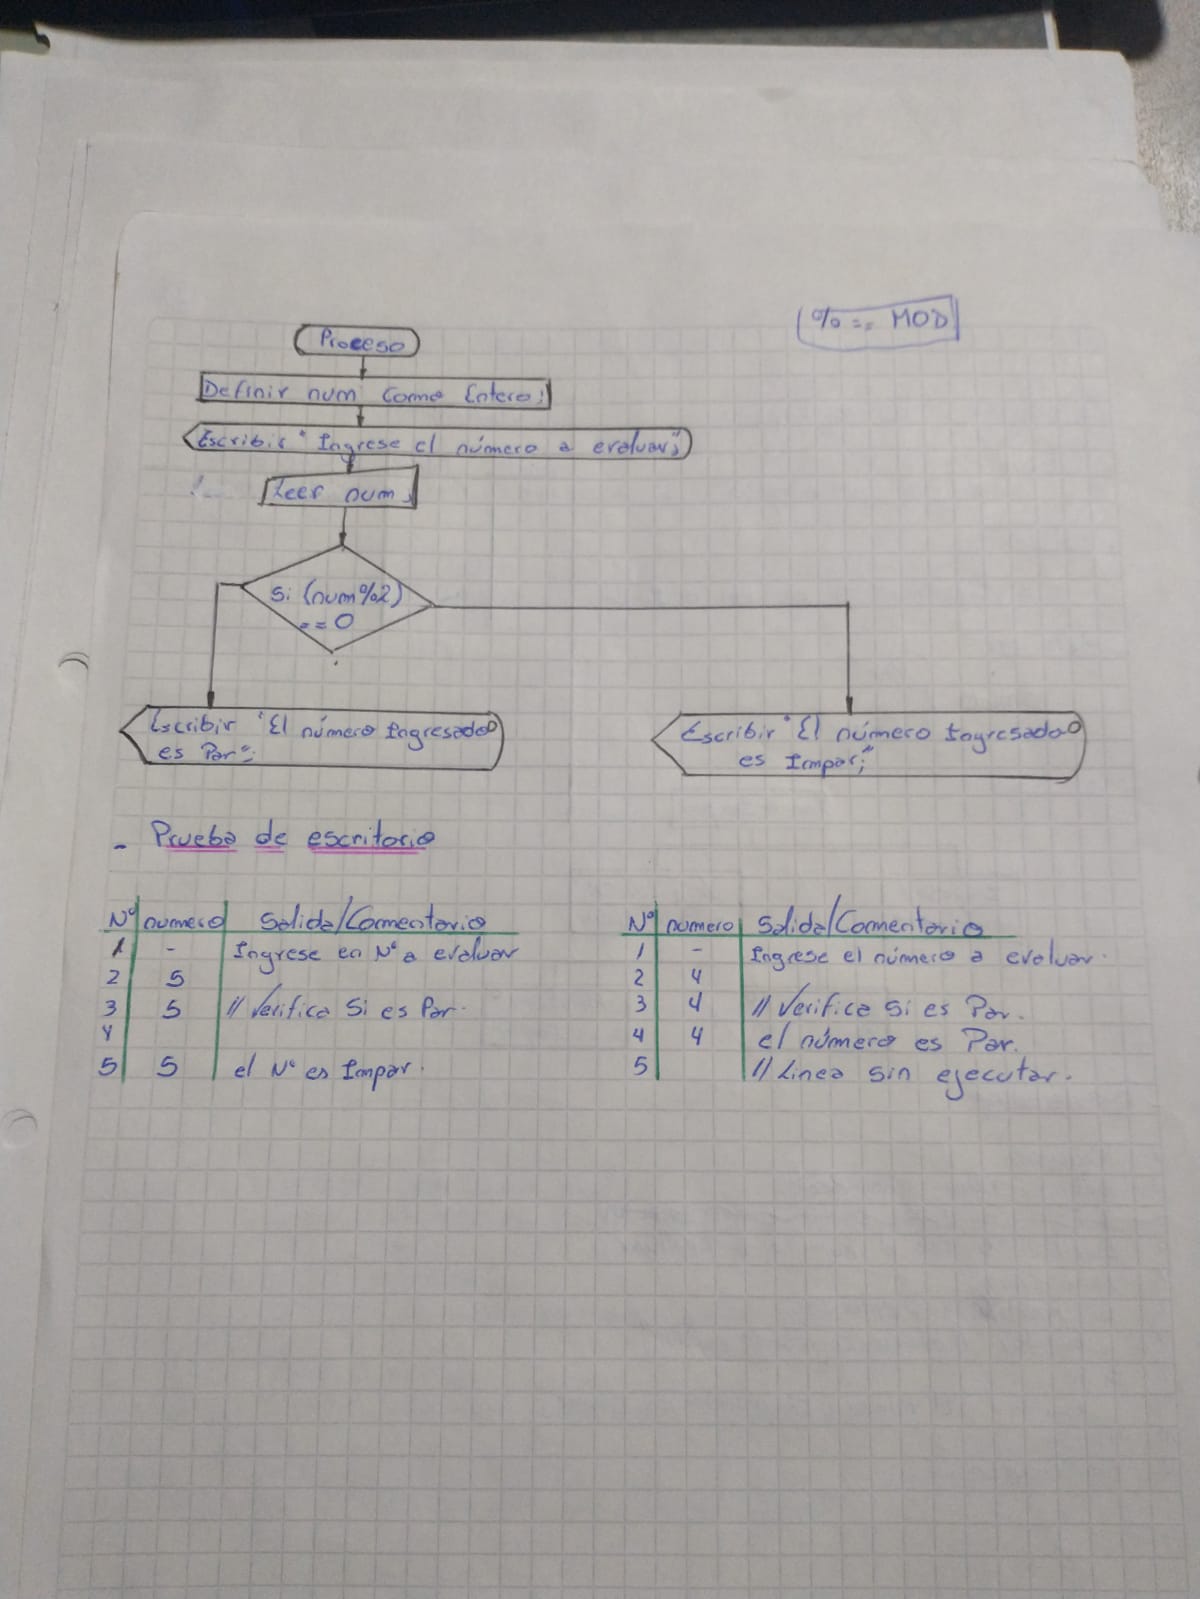 Proceso
% == MOD
Definir num como Entero;
Escribir "Ingrese el número a evaluar";
Leer num;
Si (num%2)
== 0
Escribir "El número Ingresado
es Par";
Escribir "El número Ingresado
es Impar;"
- Prueba de escritorio
Nº numero Salida/Comentario
1 - Ingrese en Nº a evaluar
2 5
3 5 // Verifica Si es Par.
4
5 5 el Nº es Impar.
Nº numero Salida/Comentario
1 - Ingrese el número a evaluar.
2 4
3 4 // Verifica Si es Par.
4 4 el número es Par.
5 // Linea sin ejecutar.